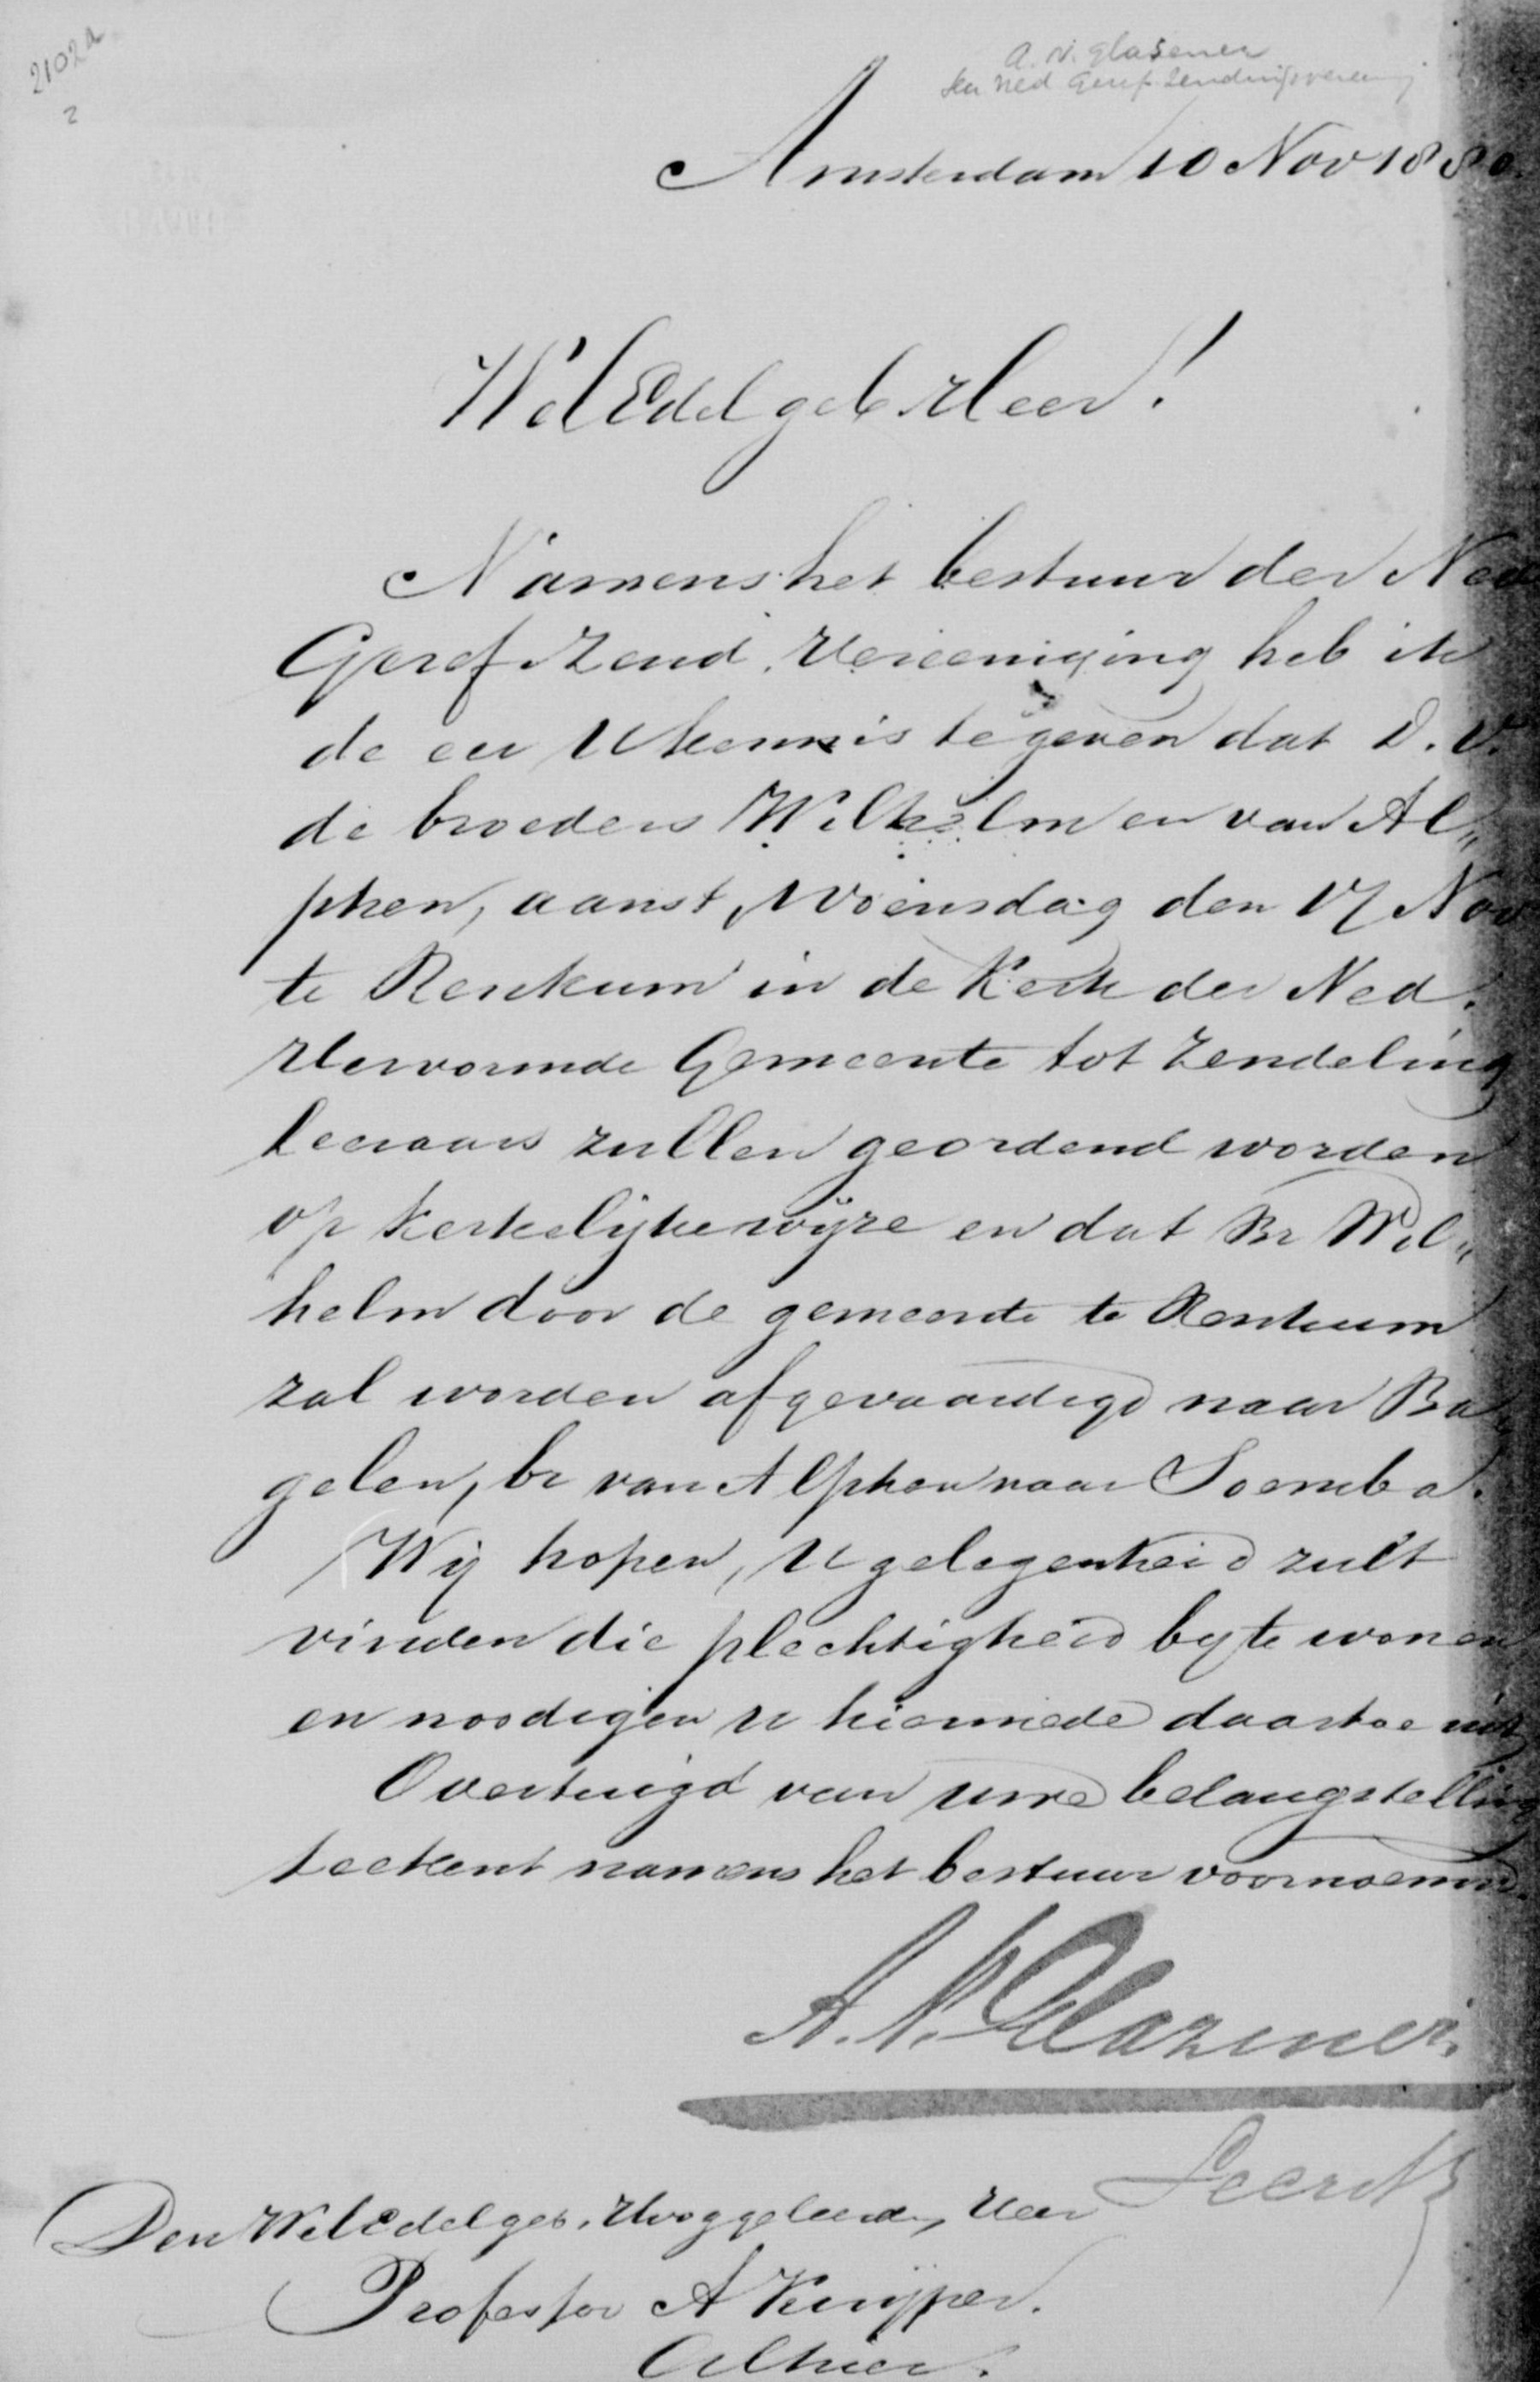 2102a
2
A. N. Glasener
Ned Geref. Zendingsvereenig
Amsterdam 10 Nov 1880.
WelEdelgeb Heer!
Namens het bestuur der Ned
Geref Zend. Vereeniging heb ik
de eer U kennis te geven dat D. V.
de broeders Wilhelm en van Al„
phen, aanst, Woensdag den 17 Nov
te Renkum in de Kerk der Ned.
Hervormde Gemeente tot Zendeling
leeraars zullen geordend worden
op kerkelijke wijze en dat Br Wil„
helm door de gemeente te Renkum
zal worden afgevaardigd naar Ba„
gelen, br van Alphen naar Soemba.
Wij hopen, U gelegenheid zult
vinden die plechtigheid by te wonen
en noodigen u hiermede daartoe uit
Overtuigd van uwe belangstelling
teekent namens het bestuur voornoemd.
A. N. Glazener.
Secret
Den WelEdelgeb. Hooggeleerden Heer
Professor A Kuijper.
Alhier.